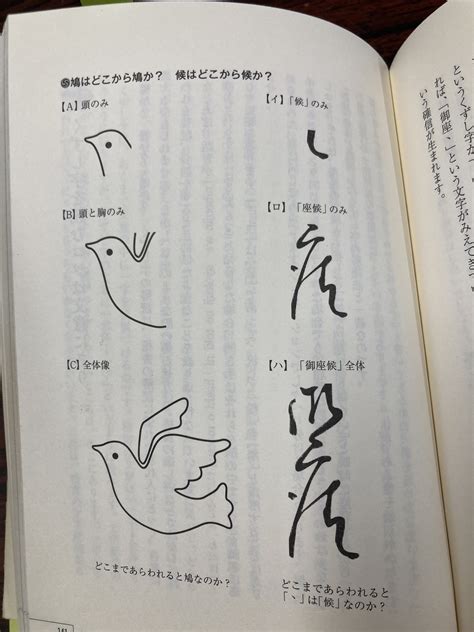 鳩はどこから鳩か？　候はどこから候か？
【A】頭のみ
【B】頭と胸のみ
【C】全体像
どこまであらわれると鳩なのか？
【イ】「候」のみ
【ロ】「座候」のみ
【ハ】「御座候」全体
どこまであらわれると
「、」は「候」なのか？
というくずし字が
れば、「御座、」という文字がみえてき
いう確信が生まれます。
141